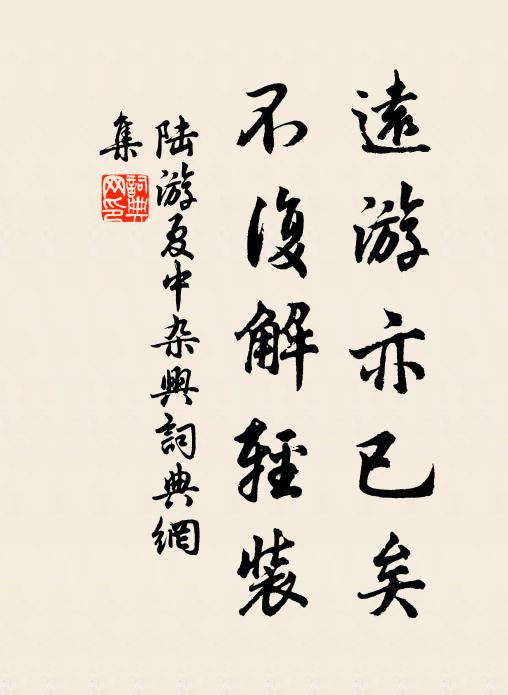 遠游亦已矣
不復解輕裝
陸游夏中杂興詞典網
集
詞典网印